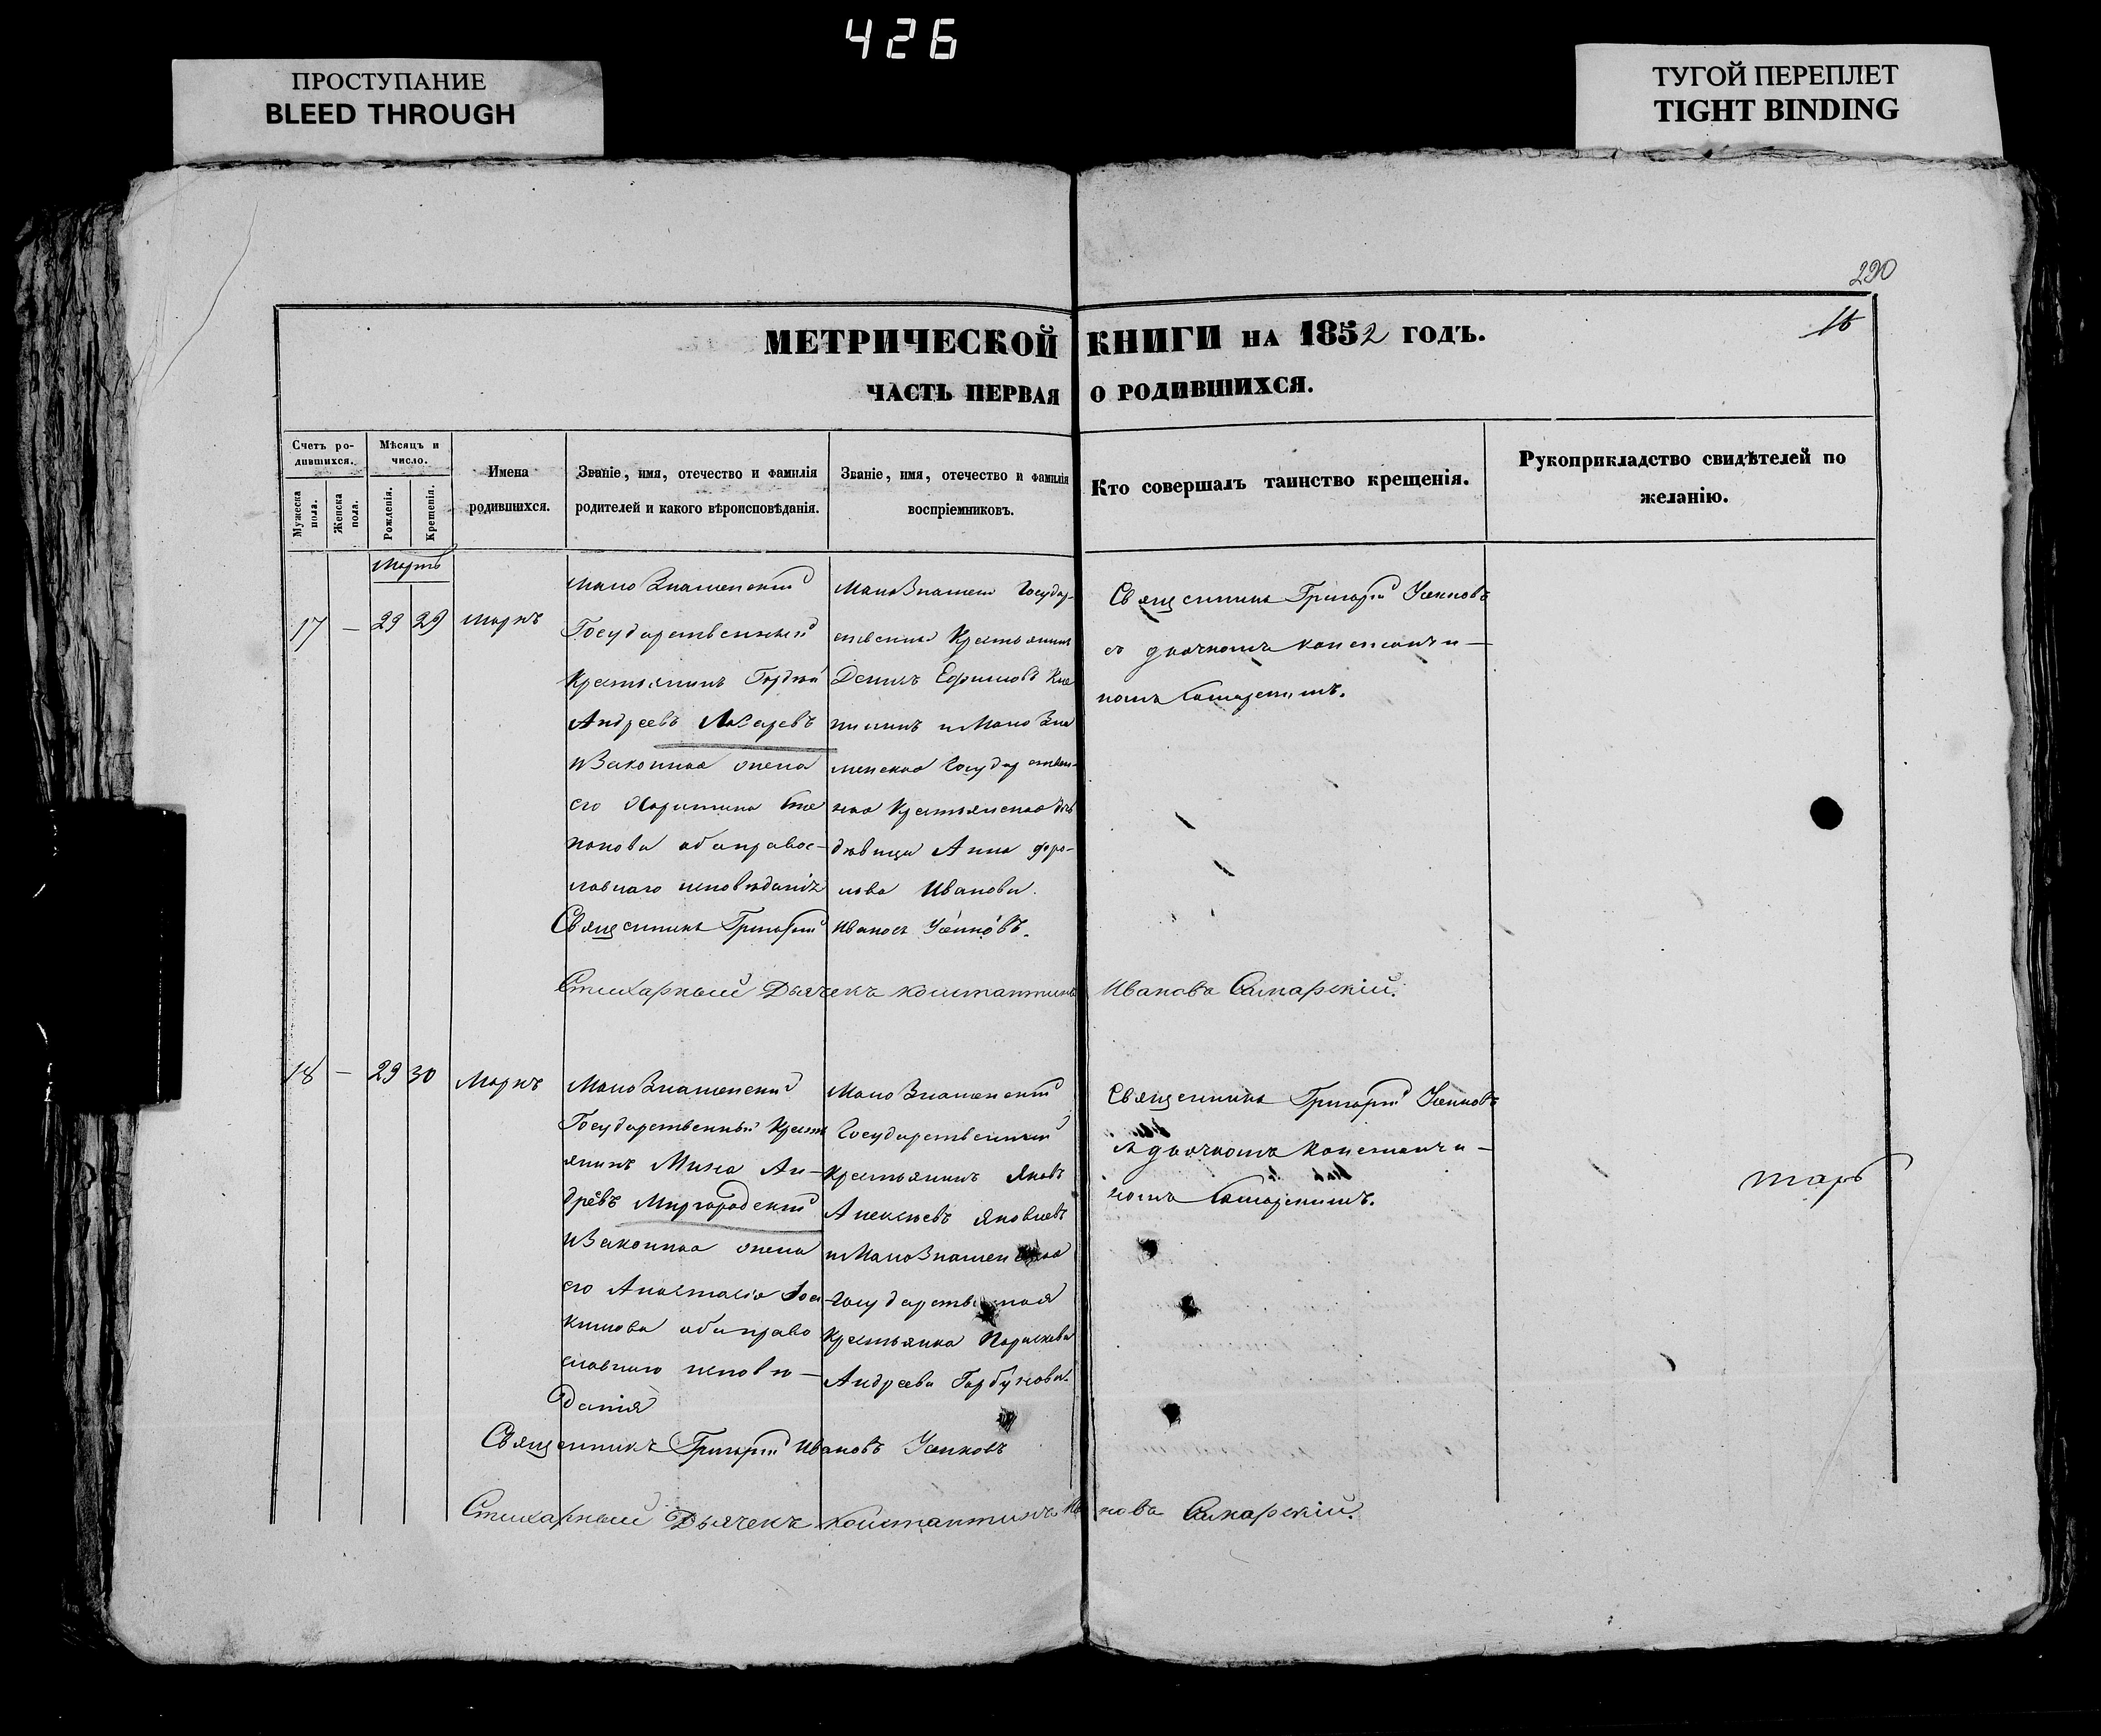 426
ПРОСТУПАНИЕ
BLEED THROUGH
ТУГОЙ ПЕРЕПЛЕТ
TIGHT BINDING
290
16
МЕТРИЧЕСКОЙ КНИГИ НА 1852 ГОДЪ.
ЧАСТЬ ПЕРВАЯ О РОДИВШИХСЯ.
Счетъ ро-
дившихся.
Мужеска
пола.
Женска
пола.
Мѣсяцъ и
число.
Рожденія.
Крещенія.
Имена
родившихся.
Званіе, имя, отечество и фамилія
родителей и какого вѣроисповѣданія.
Званіе, имя, отечество и фамилія
воспріемниковъ.
Кто совершалъ таинство крещенія.
Рукоприкладство свидѣтелей по
желанію.
Мартъ
17 — 29 29 Маркъ
Мало Знаменскій
Государственный
Крестьянинъ Гордѣй
Андреевъ Лазаревъ
и Законная жена
его Харитина Сте
панова оба правос-
лавнаго исповѣданія
Мало Знамен Государ-
ственный Крестьянинъ
Денисъ Ефимовъ
и Мало Зна
менская Государствен-
ная Крестьянская дочь
дѣвица Анна
Иванова.
Священникъ Григорій Усенковъ
съ дьячкомъ Константи-
номъ Самарскимъ.
Священникъ Григорій Ивановъ Усенковъ.
Стихарный Дьячекъ Константинъ Ивановъ Самарскій.
18 — 29 30 Маркъ
Мало Знаменскій
Государственный Кресть
янинъ Мина Ан-
дрѣевъ Миргородскій
и Законная жена
его Анастасія Іоа
кимова оба право
славнаго исповѣ-
данія
Мало Знаменскій
Государственный
Крестьянинъ Яковъ
Алексѣевъ Яковлевъ
и Мало Знаменская
Государственная
Крестьянка Параскева
Андреева Горбунова.
Священникъ Григорій Усенковъ
съ дьячкомъ Константи-
номъ Самарскимъ.
марь
Священникъ Григорій Ивановъ Усенковъ
Стихарный Дьячекъ Константинъ Ивановъ Самарскій.